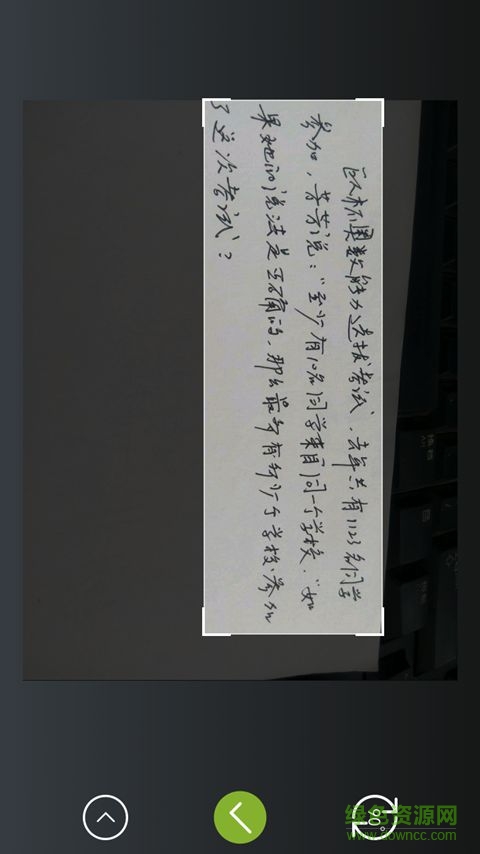 区杯奥数能力选拔考试，去年共有1123名同学
参加，芳芳说：“至少有10名同学来自同一个学校.”如
果她的说法是正确的，那么最多有多少个学校参加
了这次考试？
90°
绿色资源网
www.downcc.com